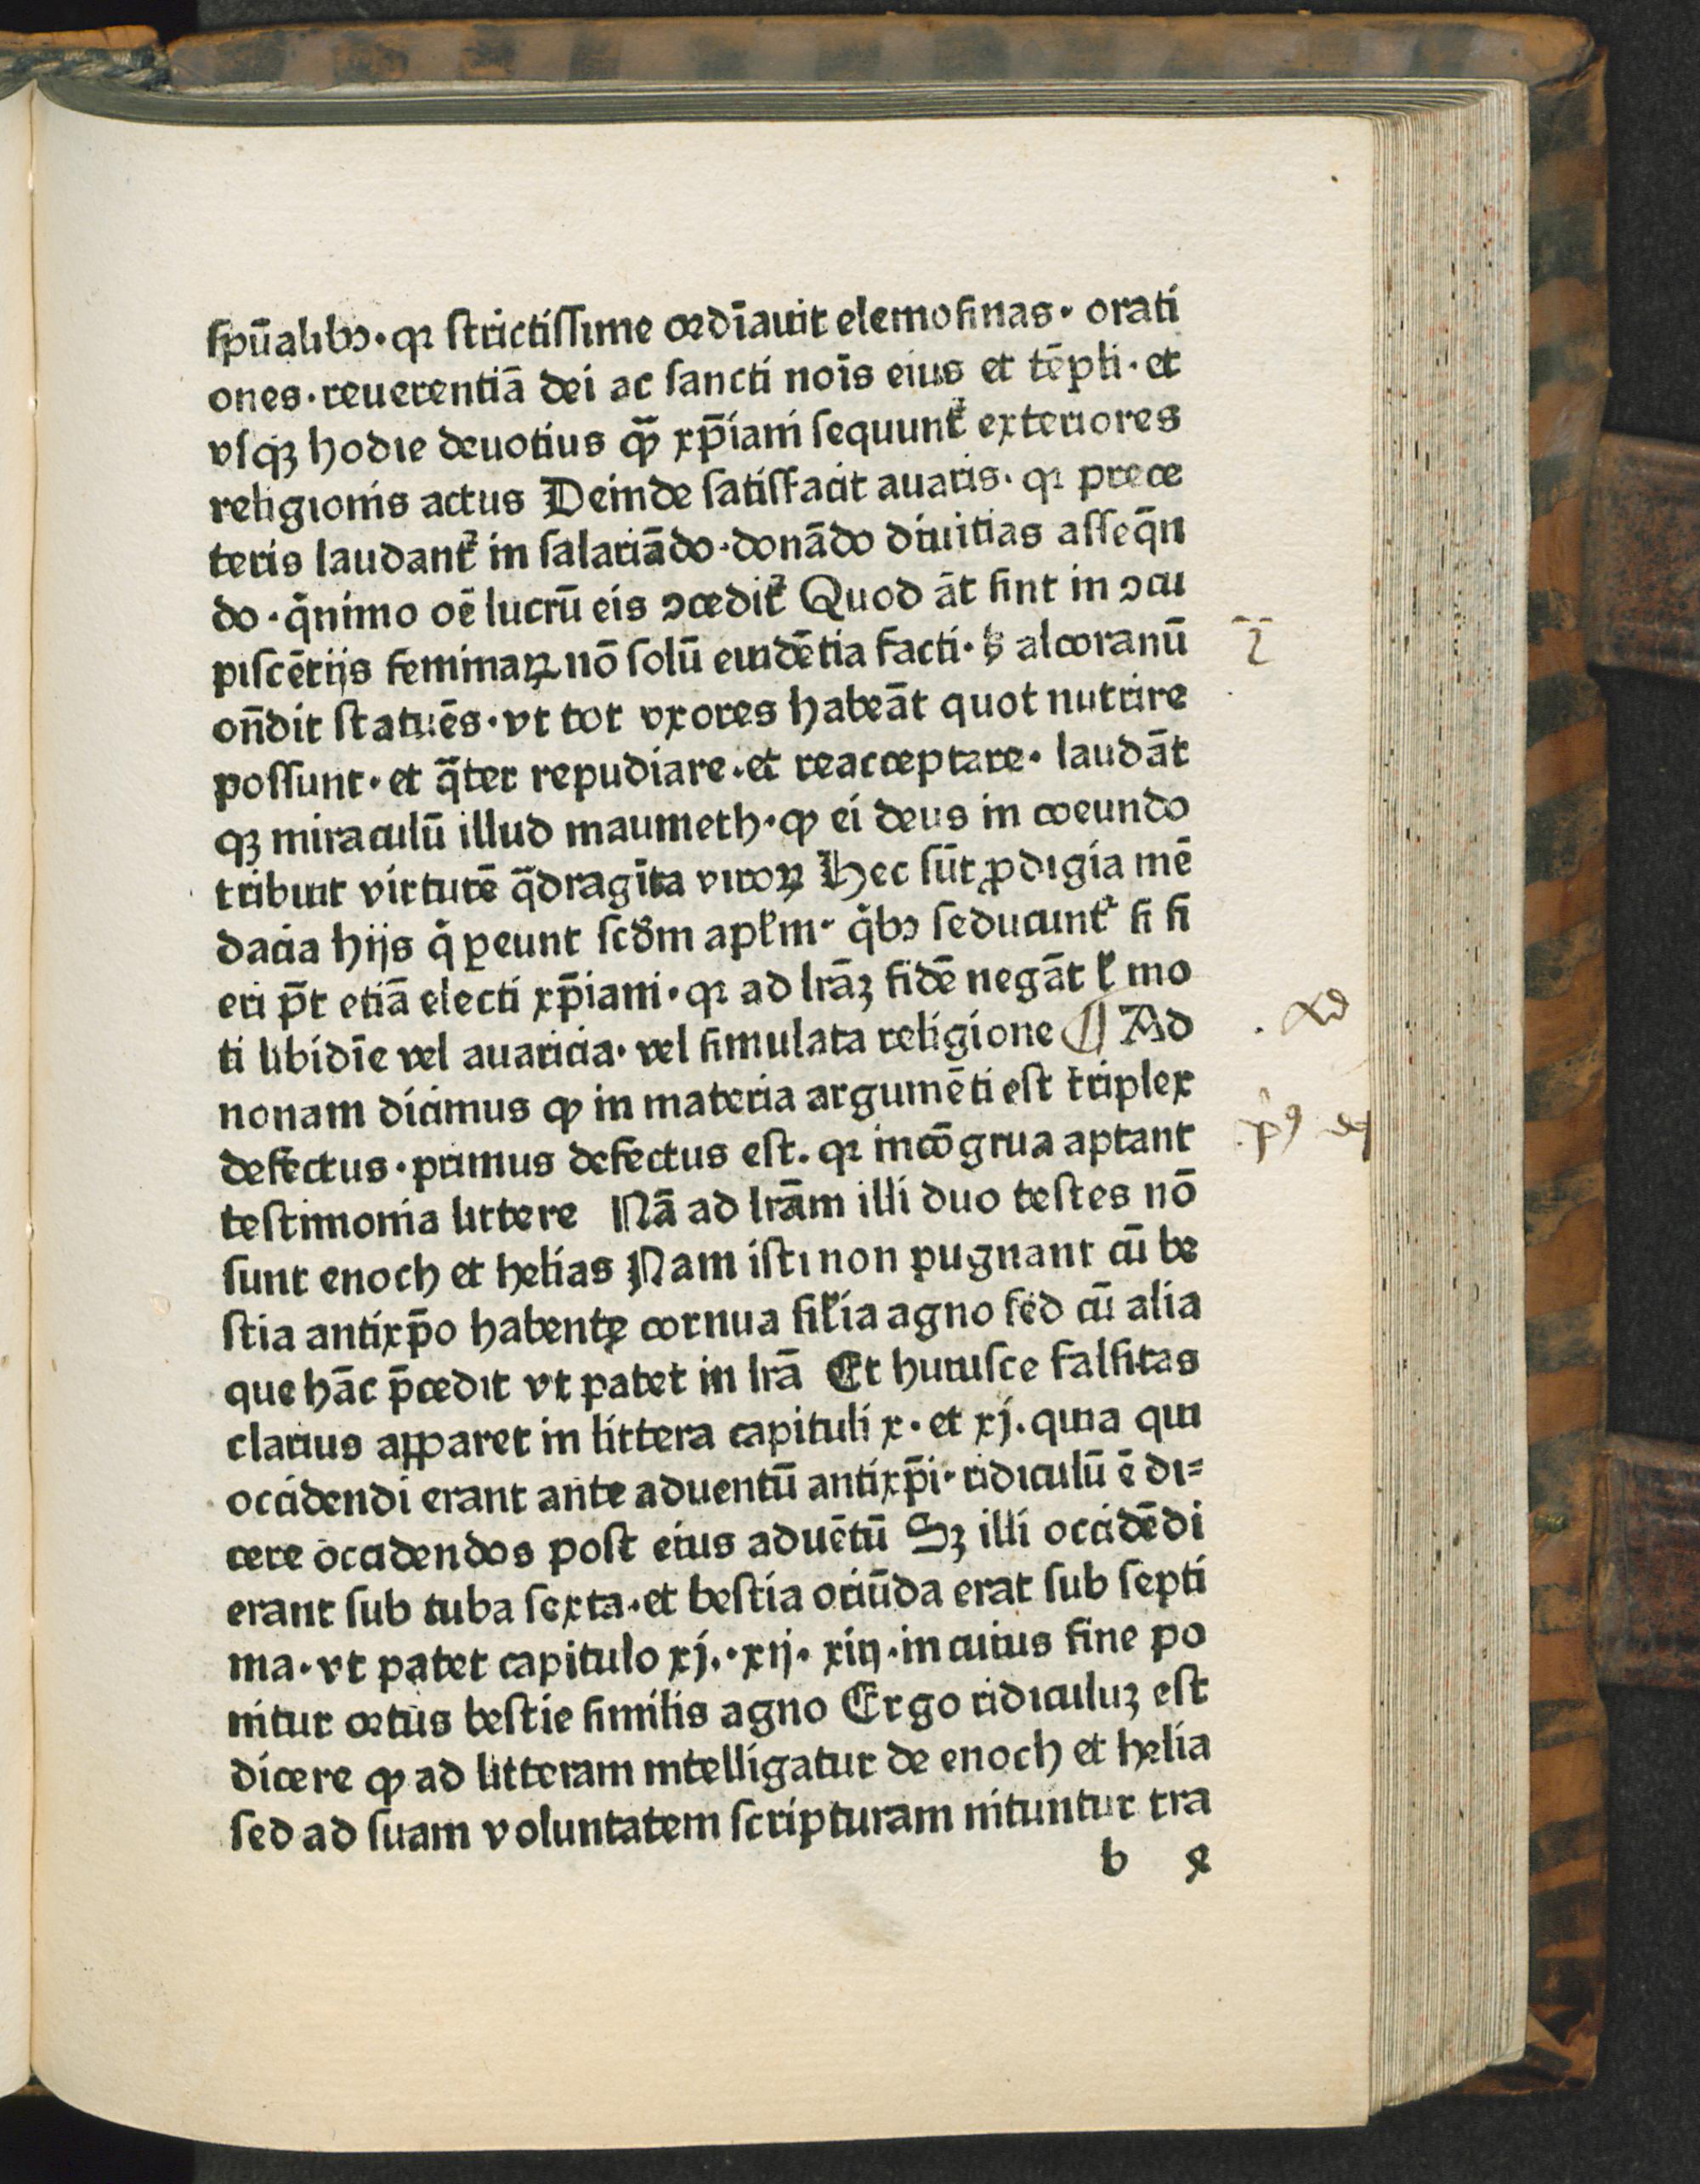 ſpūalibꝯ· qꝛ ſtrictiſſime oꝛdīauit elemoſinas· orati
ones· reuerentiā dei ac ſancti noīs eius et tēpli· et
vſqꝫ hodie deuotius qꝫ̄ xp̄iani ſequunt᷑ exteriores
religionis actus Deinde ſatiſfacit auaris· qꝛ prece
teris laudant᷑ in ſalariādo· donādo diuitias aſſeq̄n
do· q̄nimo oē lucrū eis ꝯcedit᷑ Quod āt ſint in ꝯcu
piſcētijs feminaꝝ nō ſolū euidētia facti· ſꝫ alcoranū
on̄dit ſtatuēs· vt tot vxores habeāt quot nutrire
poſſunt· et q̄ter repudiare· et reacceptare· laudāt
qꝫ miraculū illud maumeth· ꝙ ei deus in coeundo
tribuit virtutē q̄dragīta viroꝝ Hec ſūt ꝓdigia mē
dacia hijs q̄ ꝑeunt ſcd̄m apl̄m· q̄bꝯ ſeducunt᷑ ſi fi
eri p̄t etiā electi xp̄iani· qꝛ ad lr̄āꝫ fidē negāt ł mo
ti libidīe vel auaricia· vel ſimulata religione ¶ Ad
nonam dicimus ꝙ in materia argumēti eſt triplex
defectus· primus defectus eſt. qꝛ incōgrua aptant
teſtimonia littere Nā ad lr̄am illi duo teſtes nō
ſunt enoch et helias Nam iſti non pugnant cū be
ſtia antixp̄o habente cornua ſil̄ia agno ſed cū alia
que hāc p̄cedit vt patet in lr̄a Et huiuſce falſitas
clarius apparet in littera capituli x· et xj. quia qui
occidendi erant ante aduentū antixp̄i· ridiculū ē di⸗
cere occidendos poſt eius aduētū Sꝫ illi occidēdi
erant ſub tuba ſexta· et beſtia oriūda erat ſub ſepti
ma· vt patet capitulo xj.· xij· xiij· in cuius fine po
nitur oꝛtus beſtie ſimilis agno Ergo ridiculuꝫ eſt
dicere ꝙ ad litteram intelligatur de enoch et helia
ſed ad ſuam voluntatem ſcripturam nituntur tra
b